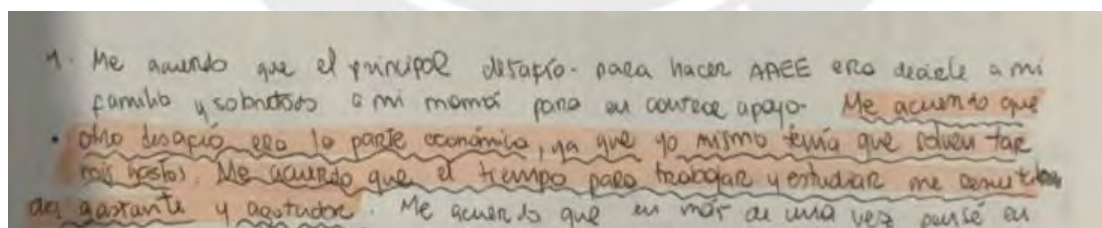 1. Me acuerdo que el principal desafío. para hacer AREE era decirle a mi
familia y sobretodo a mi mamá para su apoyo. Me acuerdo que
• otro desafío era la parte económica, ya que yo mismo tenía que solventar
mis gastos. Me acuerdo que el tiempo para trabajar y estudiar me
gastante y agotador. Me acuerdo que en más de una vez pensé en